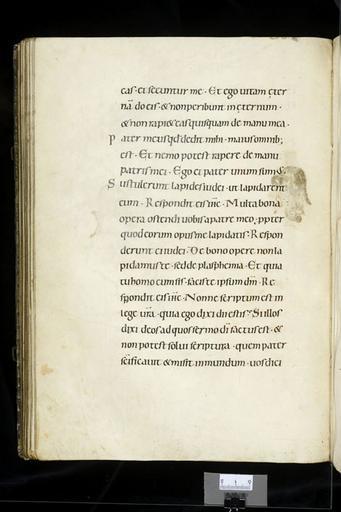 eas· et secuntur me· Et ego vitam ęter
nā do eis· & non peribunt in ęternum·
& non rapi& eas quisquam de manu mea·
Pater meus qd dedit mihi· maius omnib;
est· Et nemo potest rapere de manu
patris mei· Ego et pater unum sum'·
Sustulerunt lapides iudei· ut lapidarent
eum· Respondit eis ihc· Multa bona
opera ostendi uobis a patre meo· ppter
quod eorum opus me lapidatis· Respon
derunt ei iudei· De bono opere non la
pidamus te· sed de blasphemia· Et quia
tu homo cum sis· facis te ipsum dm̄· Re
spondit eis ihc· Nonne scriptum est in
lege vr̄a· quia ego dixi dii estis· Si illos
dixit deos ad quos sermo dī factus est· &
non potest solui scriptura· quem pater
sc̄ificauit & misit in mundum· uos dici